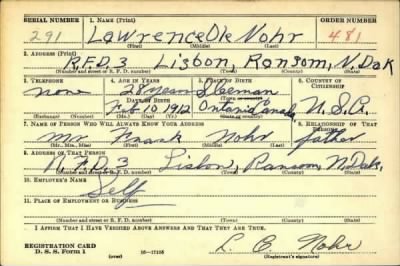 SERIAL NUMBER 1. NAME (Print) ORDER NUMBER
291 Lawrence Ole Nohr 481
(First) (Middle) (Last)
2. ADDRESS (Print)
R.F.D. 3 Lisbon, Ransom, N. Dak
(Number and street or R. F. D. number) (Town) (County) (State)
3. TELEPHONE 4. AGE IN YEARS 5. PLACE OF BIRTH 6. COUNTRY OF CITIZENSHIP
none 28 years
DATE OF BIRTH
Feb. 10 1912 Ontario Canada U.S.A.
7. NAME OF PERSON WHO WILL ALWAYS KNOW YOUR ADDRESS 8. RELATIONSHIP OF THAT PERSON
Mr. Frank Nohr father
(Mr., Mrs., Miss) (First) (Middle) (Last)
9. ADDRESS OF THAT PERSON
R.F.D. 3 Lisbon, Ransom, N. Dak.
(Number and street or R. F. D. number) (Town) (County) (State)
10. EMPLOYER'S NAME
Self
11. PLACE OF EMPLOYMENT OR BUSINESS
(Number and street or R. F. D. number) (Town) (County) (State)
I AFFIRM THAT I HAVE VERIFIED ABOVE ANSWERS AND THAT THEY ARE TRUE.
REGISTRATION CARD
D. S. S. Form 1 (over) 16—17105 L. O. Nohr
(Registrant's signature)